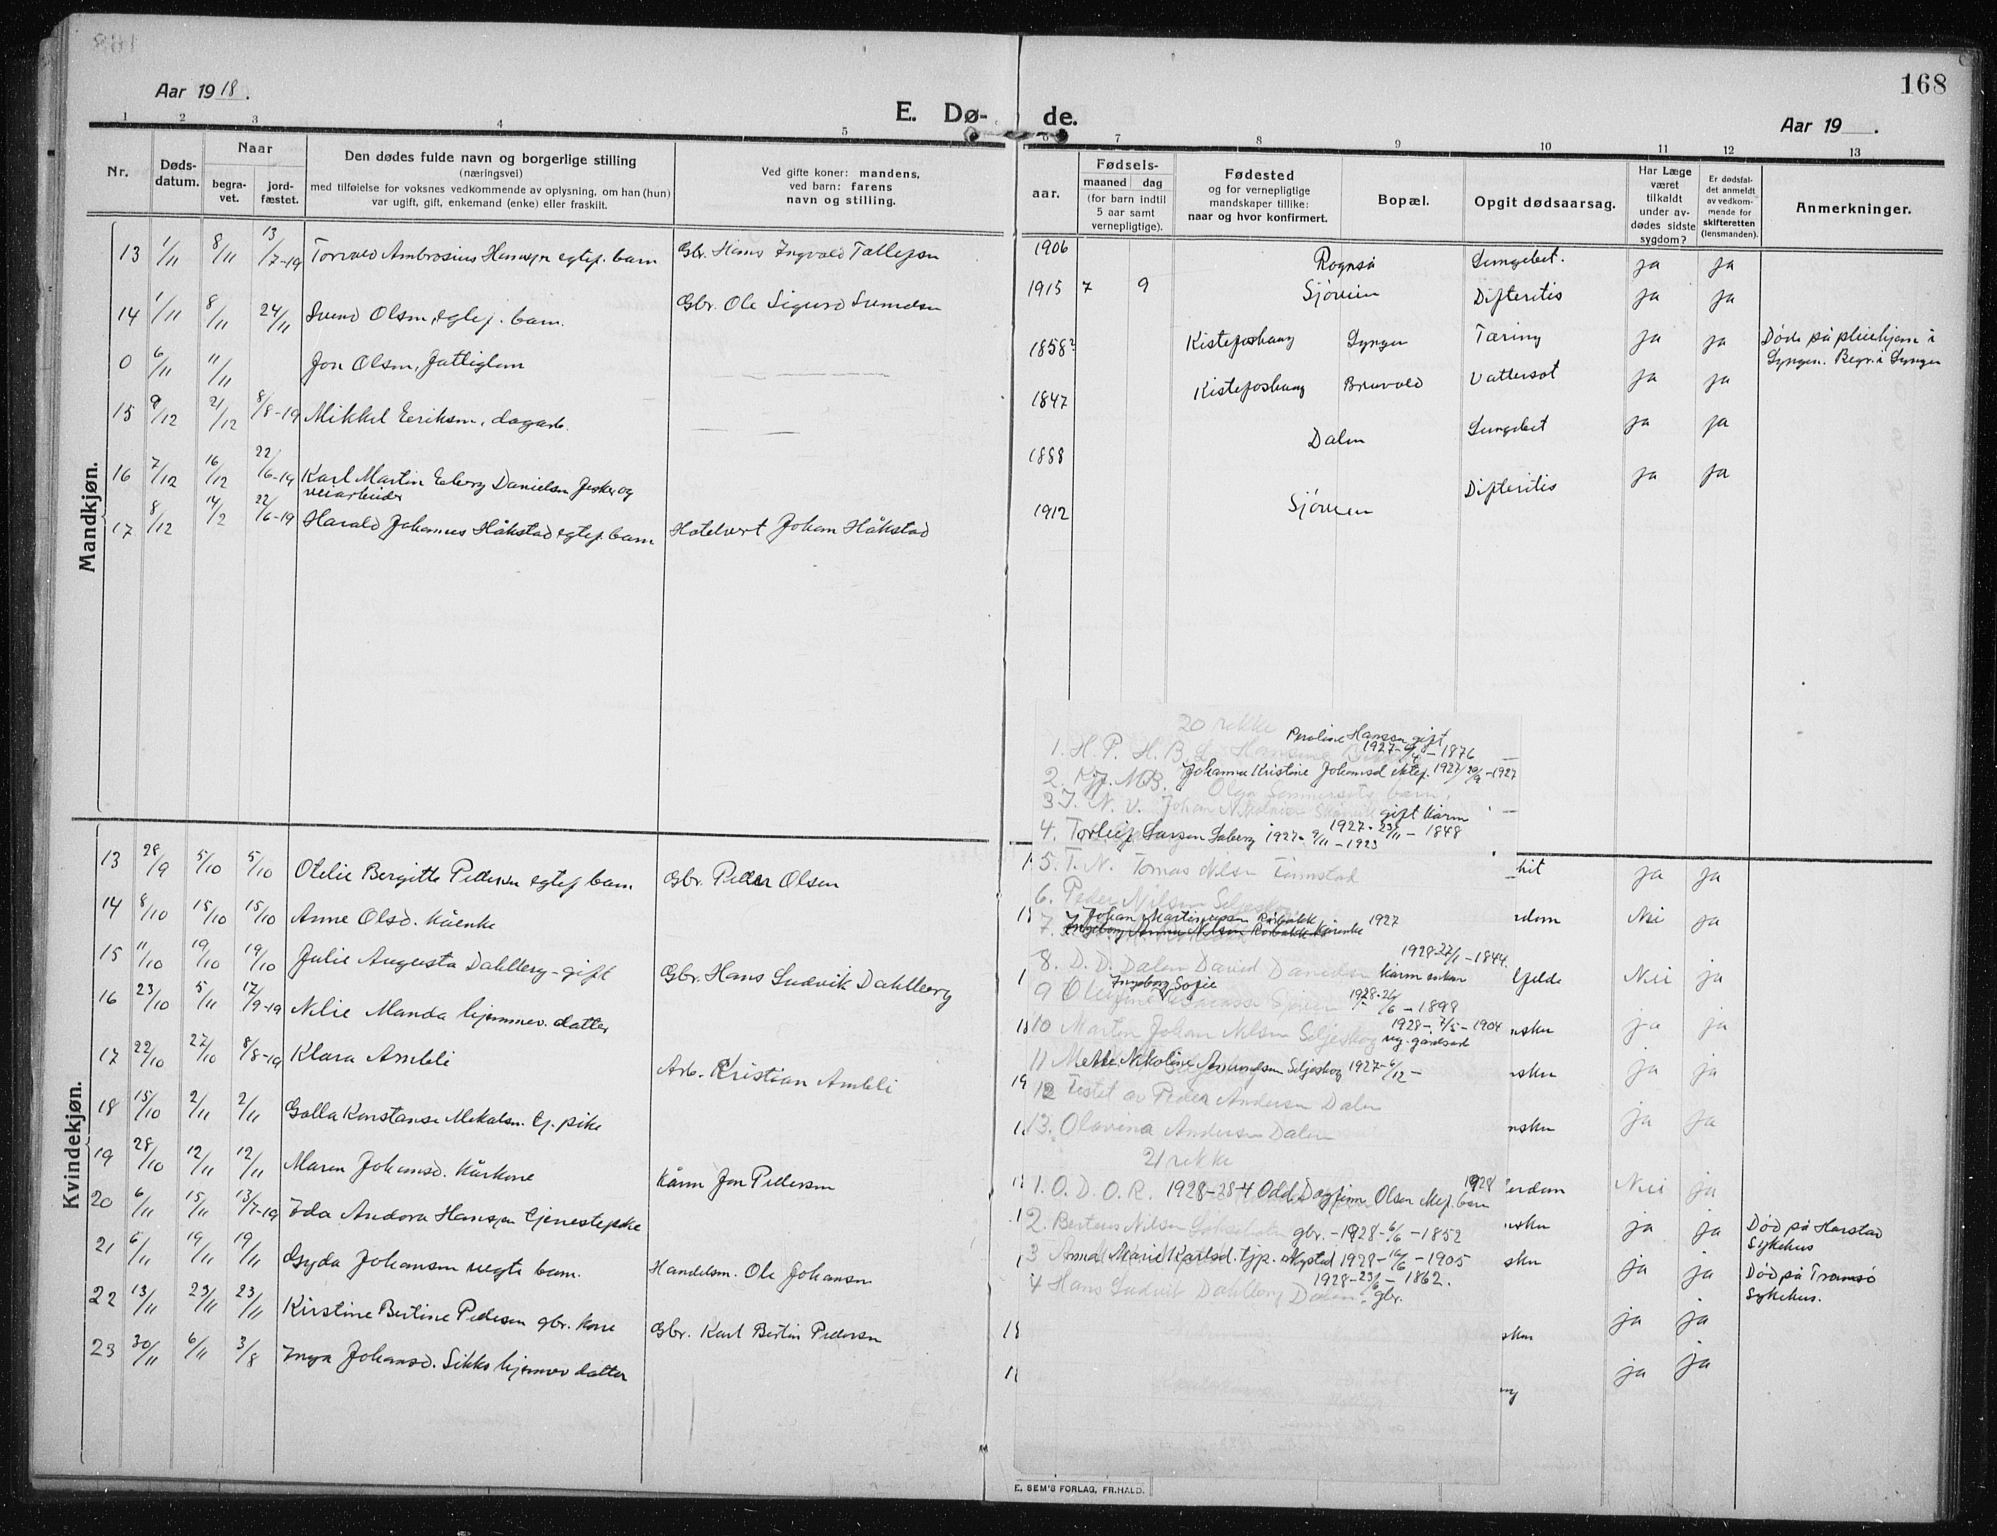 168
Aar 1918.
E. Dø- de.
Aar 19 .
1 2 3 4 5 6 7 8 9 10 11 12 13
Nr.
Døds-
datum.
Naar
begra-
vet.
jord-
fæstet.
Den dødes fulde navn og borgerlige stilling
(næringsvei)
med tilføielse for voksnes vedkommende av oplysning, om han (hun)
var ugift, gift, enkemand (enke) eller fraskilt.
Ved gifte koner: mandens,
ved barn: farens
navn og stilling.
aar.
Fødsels-
maaned dag
(for barn indtil
5 aar samt
vernepligtige).
Fødested
og for vernepligtige
mandskaper tillike:
naar og hvor konfirmert.
Bopæl.
Opgit dødsaarsag.
Har Læge
været
tilkaldt
under av-
dødes sidste
sygdom?
Er dødsfal-
det anmeldt
av vedkom-
mende for
skifteretten
(lensmanden).
Anmerkninger.
Mandkjøn.
13 1/11 8/11 13/7-19 Torvald Ambrosius Hansen egtef. barn Gbr. Hans Ingvald Tollefsen 1906 Rognså Lungebet. ja ja
14 1/11 8/11 24/11 Svend Olsen, egtef. barn. Gbr. Ole Sigurd Svendsen 1915 7 9 Sjøveien Difteritis ja ja
0 6/11 11/11 Jon Olsen, fattiglem 1858? Kistefoshaug Lyngen Tæring ja ja Døde på pleiehjem i
Lyngen. Begr. i Lyngen
15 9/12 21/12 8/8-19 Mikkel Eriksen, dagarb. 1847 Kistefoshaug Bruvold Vattersot ja ja
16 7/12 16/12 22/6-19 Karl Martin Edberg Danielsen fisker og
veiarbeider 1888 Dalen Lungebet ja ja
17 8/12 14/2 22/6-19 Harald Johannes Håkstad egtef. barn Hotelvert Johan Håkstad 1912 Sjøveien Difteritis ja ja
Kvindekjøn.
13 28/9 5/10 5/10 Otelie Bergitte Pedersen egtef barn Gbr. Peder Olsen ja ja
14 8/10 15/10 15/10 Anne Olsd. kårenke Nei ja
15 11/10 19/10 19/10 Julie Augusta Dahlberg - gift Gbr. Hans Ludvik Dahlberg Nei ja
16 23/10 5/11 17/9-19 Nelie Manda hjemmev. datter ja ja
17 22/10 27/10 8/8-19 Klara Ambli Arb. Kristian Ambli ja ja
18 15/10 2/11 2/11 Golla Konstanse Mikalsen tj. pike ja ja
19 28/10 12/11 12/11 Maren Johansd. kårkone Kårm Jon Pedersen Nei ja
20 6/11 15/11 13/7-19 Ida Andora Hansen tjenestepike ja ja Død på Harstad
Sykehus
21 6/11 19/11 19/11 Gyda Johansen uegte barn. Handelsm. Ole Johansen ja ja Død på Tromsø
Sykehus.
22 13/11 23/11 23/11 Kirstine Bertine Pedersen gbr. kone Gbr. Karl Bertin Pedersen ja ja
23 30/11 6/11 3/8 Inga Johansd. Sikko hjemmev datter ja ja
20 rekke
1. H. P. H. B. Peroline Hansen gift
1927-6/4 - 1876
2. M.B. Johanna Kristine Johansd ektef. 1927
3 J. N. V. Johan gift kårm
1927 - 23/11 - 1848
4. Torleif Larsen Soberg 1927 - 9/11 - 1923
5. T. N. Tomas Nilsen Tømstad
6. Peder Nilsen Seljeskog
7. Johan Martinussen 1927
8. D. D. Dalen David Danielsen kårm enkem 1928-27/1-1844.
9 Ingeborg Sofie 1928-26/6 - 1898
10 Martin Johan Nilsen Seljeskog 1928 - 7/5 - 1904
ug. gårdsarb
11 Mette Nikoline Seljeskog 1927-6/12 -
12 Testet av Peder Andersen Dalen
13. Olavina Andersen Dalen
21 rekke
1. O. D. O. R. 1928-28-4 Odd Dagfinn Olsen 1928
2. Berteus Nilsen gbr. - 1928 - 6/6 - 1852
3 Anna Marie Karlsd. tjp. 1928 - 16/6 - 1905
4 Hans Ludvik Dahlberg Dalen. gbr. 1928 - 23/6 - 1862.
E. SEM'S FORLAG, FR.HALD.